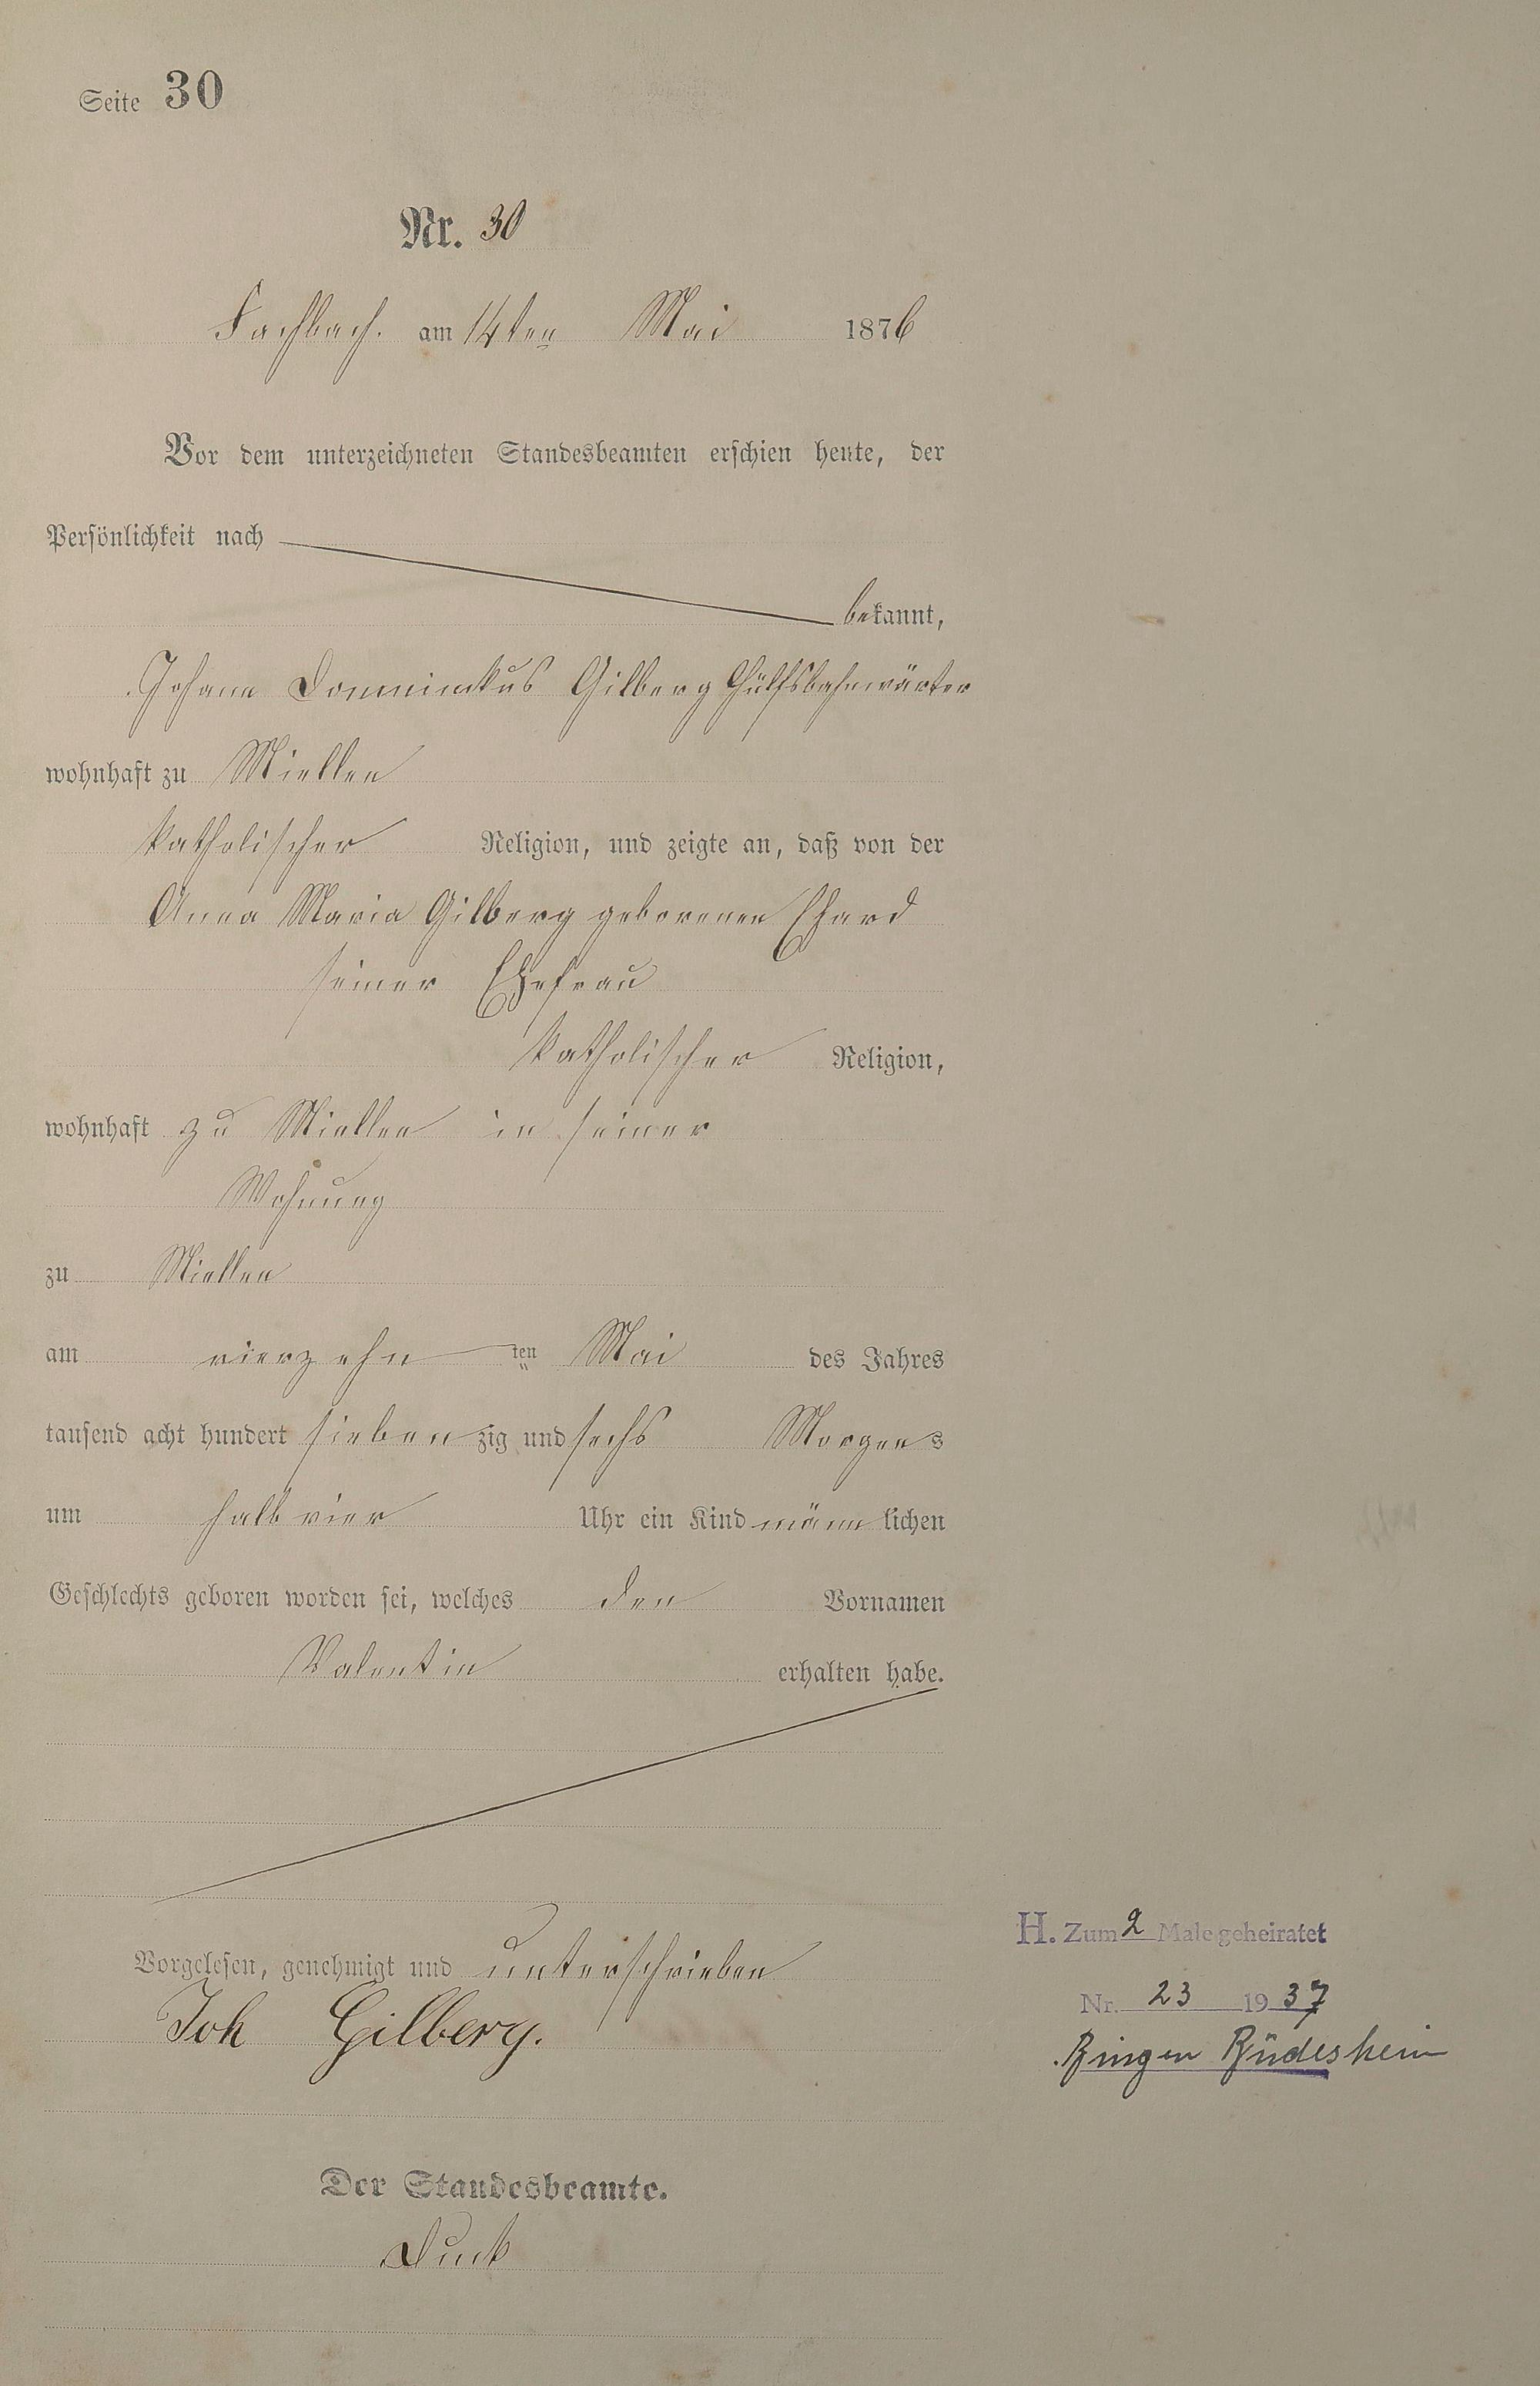 Seite 30
Nr. 30
Fachbach. am 14ten Mai 1876
Vor dem unterzeichneten Standesbeamten erschien heute, der
Persönlichkeit nach
bekannt,
Johann Dominickus Gilberg Hülfsbahnwärter
wohnhaft zu Miellen
katholischer Religion, und zeigte an, daß von der
Anna Maria Gilberg geborenen Ehard
seiner Ehefrau
katholischer Religion,
wohnhaft zu Miellen in seiner
Wohnung
zu Miellen
am vierzehn ten Mai des Jahres
tausend acht hundert siebenzig und sechs Morgens
um halb vier Uhr ein Kind männlichen
Geschlechts geboren worden sei, welches den Vornamen
Valentin erhalten habe.
Vorgelesen, genehmigt und unterschrieben
Joh Gilberg.
Der Standesbeamte.
H. Zum 2 Male geheiratet
Nr. 23 1937
Bingen Büdesheim